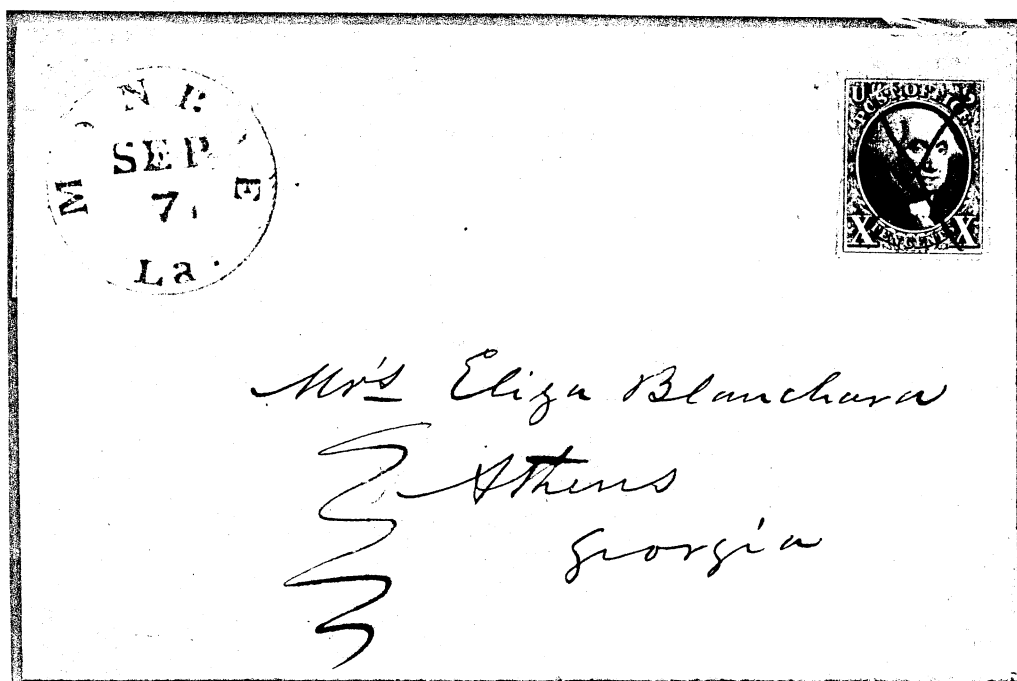 MONROE
SEP
7
La.
U S
POST OFFICE
X TEN CENTS X
Mrs Eliza Blanchard
Athens
Georgia